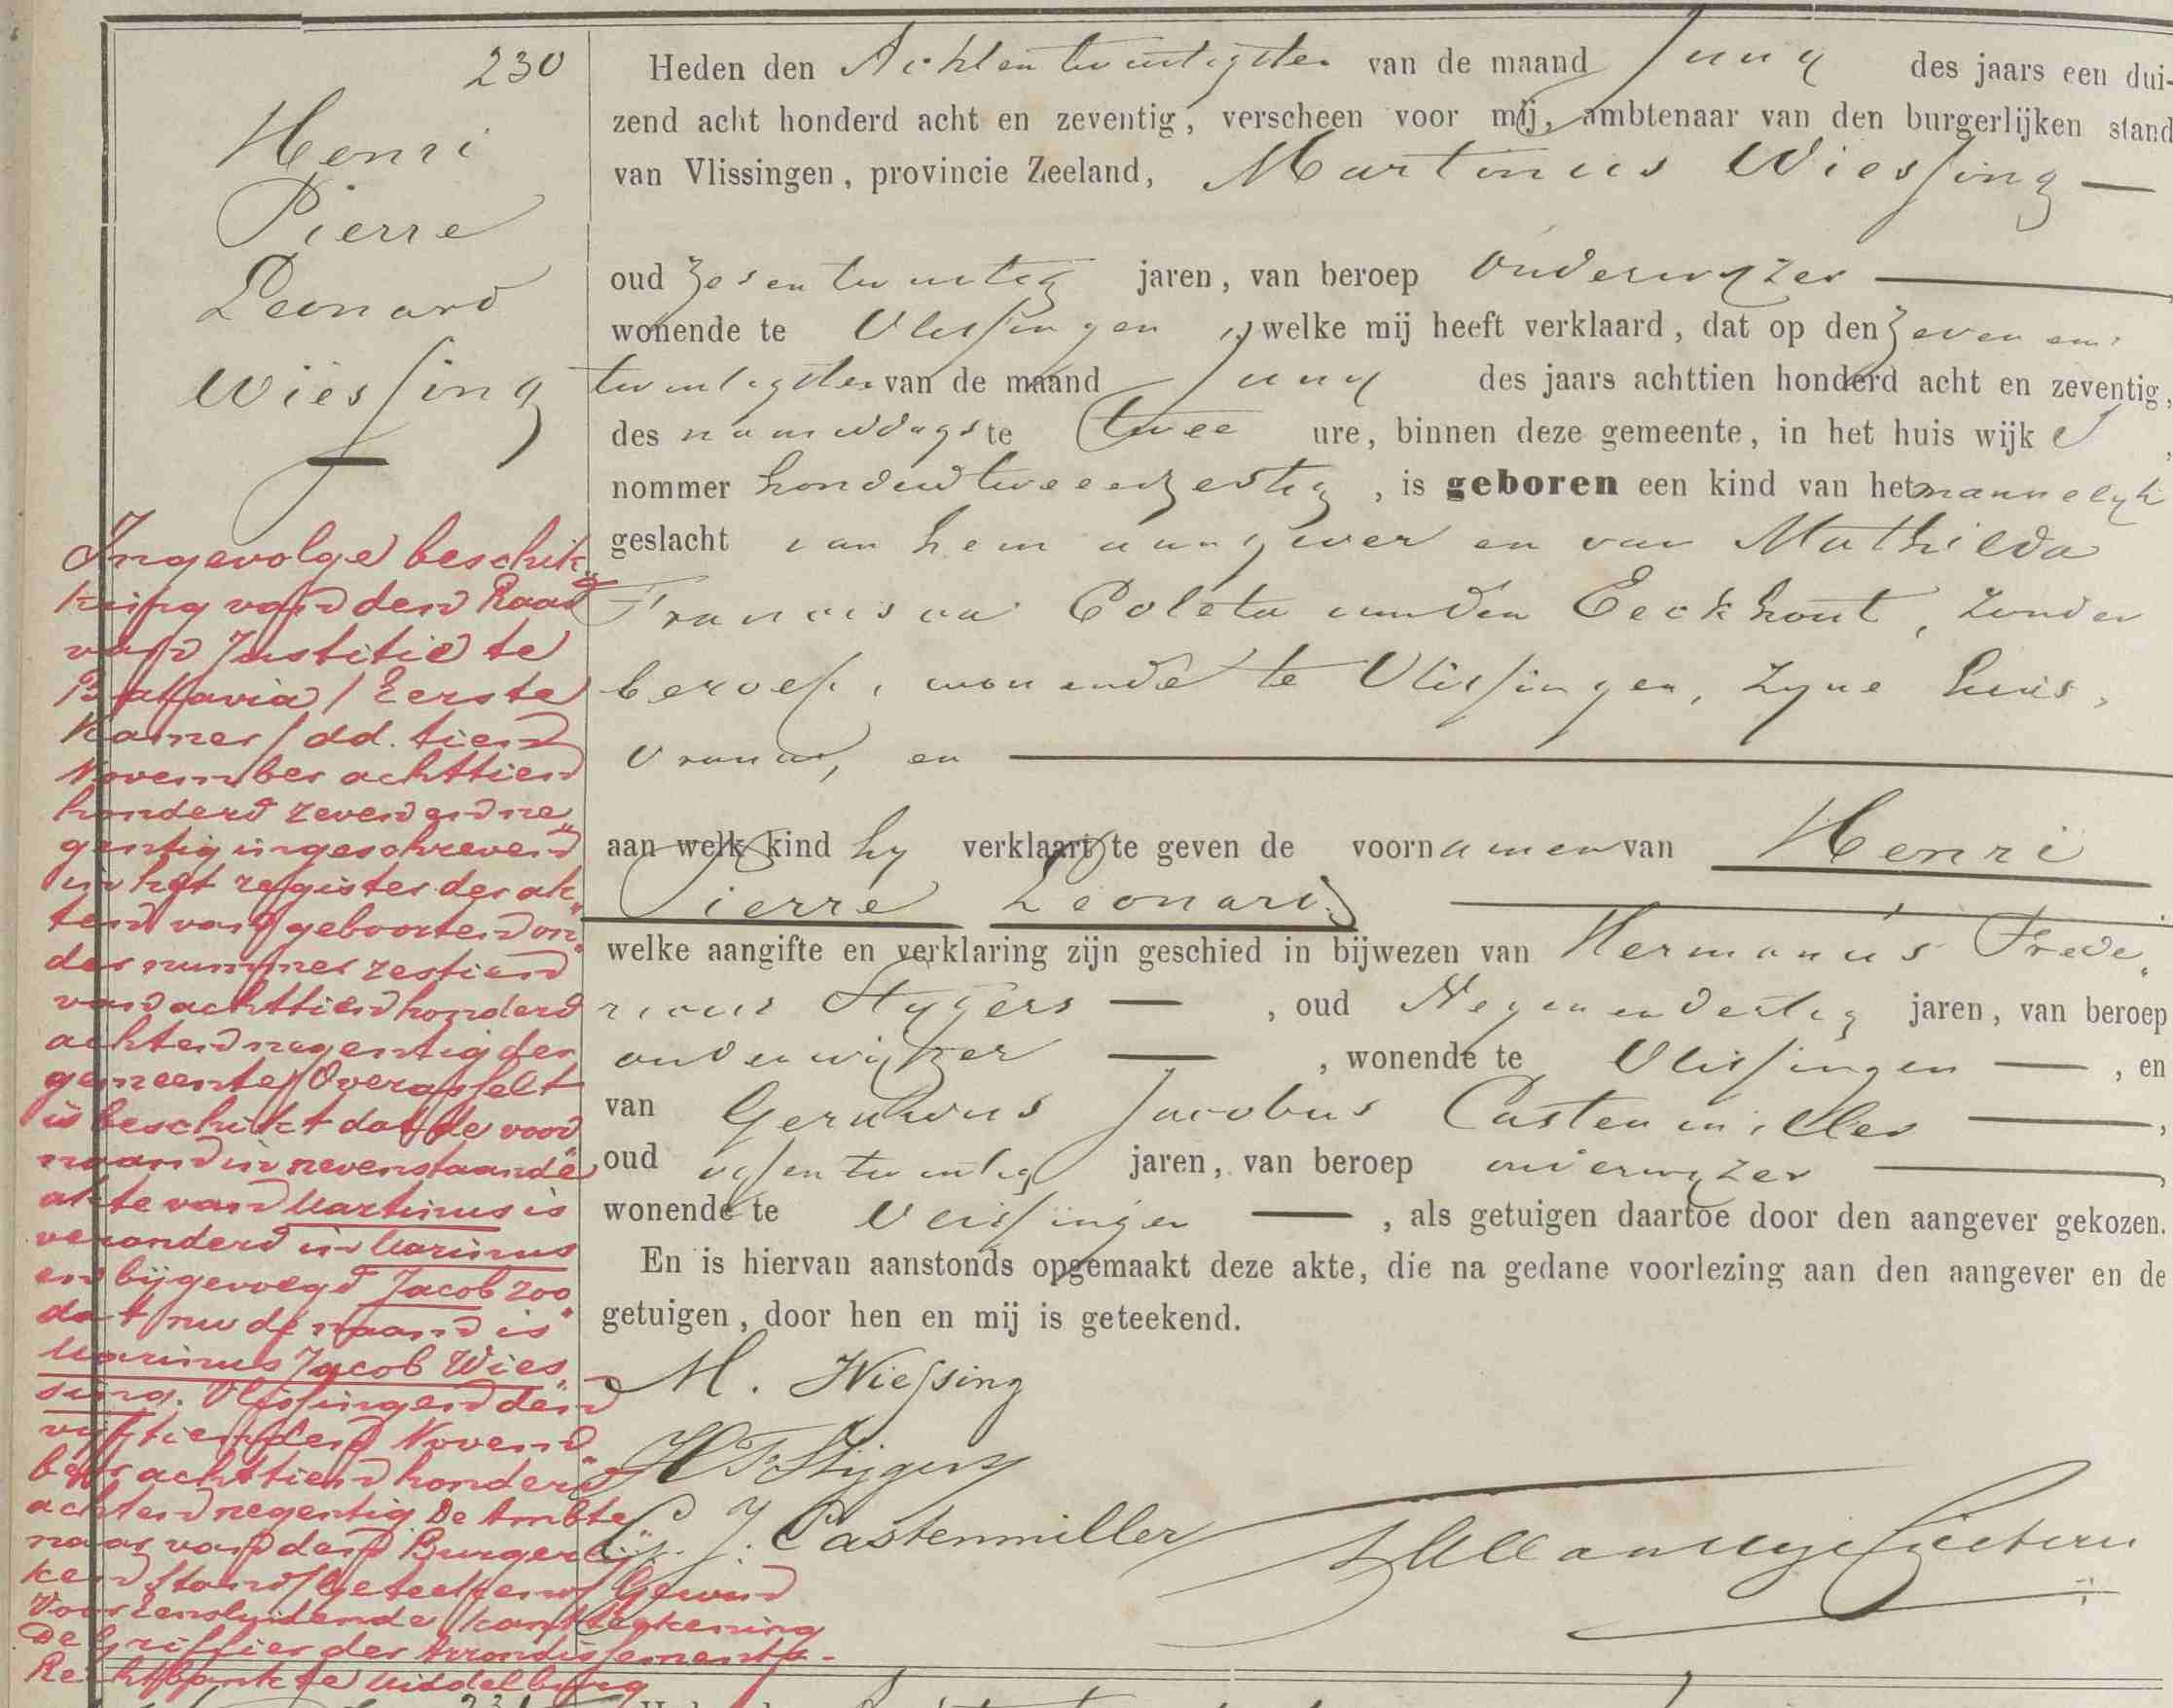 230
Henri
Pierre
Leonard
Wiessing
Ingevolge beschik„
king van den Raad
van Justitie te
Battavia / Eerste
Kamer / dd. tien
November achttien
honderd zeven en ne„
gentig ingeschreven
in het register der ak„
ten van geboorten on„
der nummer zestien
van achttienhonderd
achtennegentig der
gemeente Overasselt
is beschikt dat de voor
naam in nevenstaande
akte van Martinus is
veranderd in Marinus
en bijgevoegd Jacob zoo„
dat nu de naam is
Marinus Jacob Wies„
sing. Vlissingen den
vijftienden Novem„
ber achttien honderd
achtennegentig De Ambte„
naar van den Burgerlij„
ken Stand / Geteekend /
Voor Eensluidende kantteekening
De Griffier der Arrondissements-
Rechtbank te Middelburg
Heden den Achtentwintigsten van de maand Juny des jaars een dui-
zend acht honderd acht en zeventig, verscheen voor mij, ambtenaar van den burgerlijken stand
van Vlissingen, provincie Zeeland, Martinus Wiessing —
oud Zesentwintig jaren, van beroep Onderwyzer —
wonende te Vlissingen, welke mij heeft verklaard, dat op den Zeven en
twintigsten van de maand Juny des jaars achttien honderd acht en zeventig,
des namiddags te twee ure, binnen deze gemeente, in het huis wijk
nommer honderdtweeenzestig, is geboren een kind van het mannelyk
geslacht van hem aangever en van Mathilda
Francisca Coleta van den Eeckhout, zonder
beroep, wonende te Vlissingen, zyne huis„
vrouw, en —
aan welk kind hy verklaart te geven de voornamen van Henri
Pierre Leonard —
welke aangifte en verklaring zijn geschied in bijwezen van Hermanus Frede„
ricus Stygers —, oud Negenendertig jaren, van beroep
onderwijzer —, wonende te Vlissingen —, en
van Gerardus Jacobus Castenmiller —,
oud vyfentwintig jaren, van beroep onderwyzer —,
wonende te Vlissingen —, als getuigen daartoe door den aangever gekozen.
En is hiervan aanstonds opgemaakt deze akte, die na gedane voorlezing aan den aangever en de
getuigen, door hen en mij is geteekend.
M. Wiessing
H F Stijgers
G. J. Castenmiller